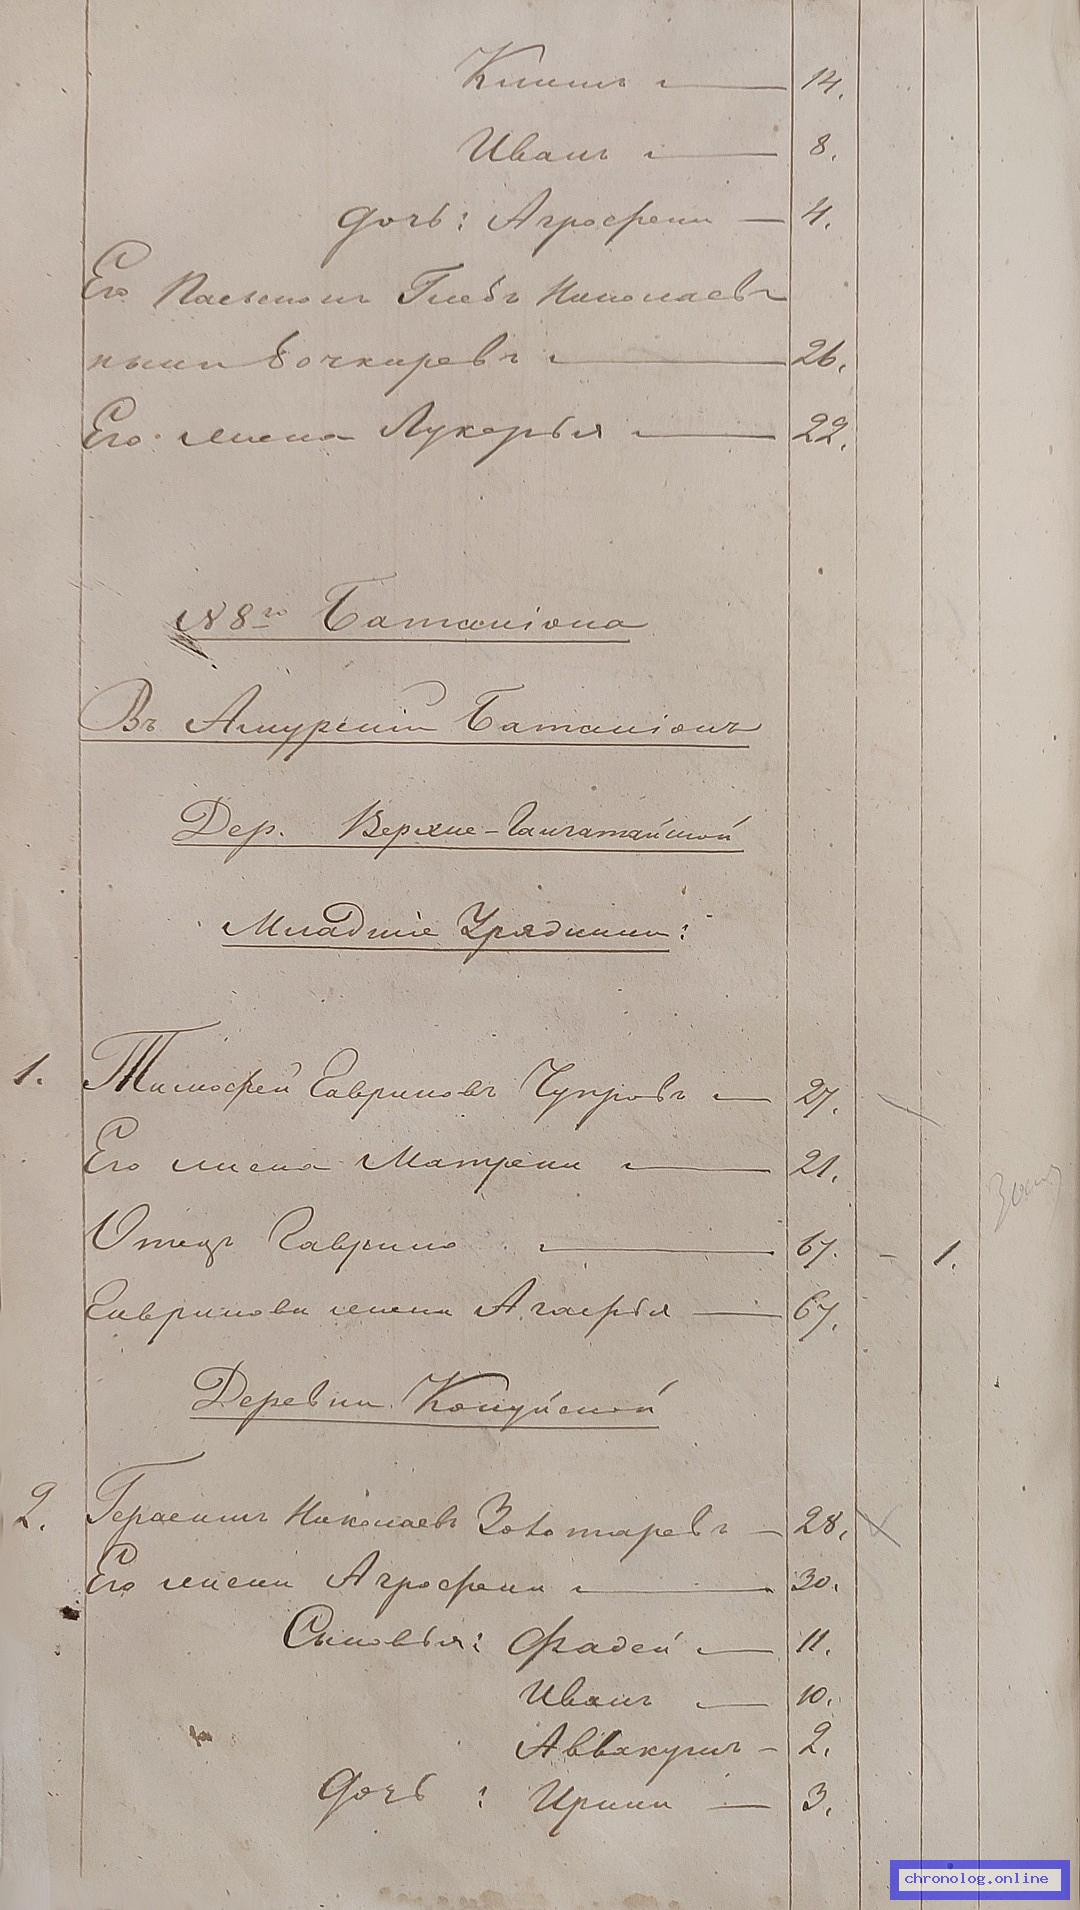 14.
Иванъ 8.
Дочь: Агрофена 4.
Его Пасынокъ Глебъ Николаевъ
Бочкаревъ 26.
Его жена Лукерья 22.
№ 8го Баталіона
Въ Амурскій Баталіонъ
Дер. Верхне-
Младшіе Урядники:
1. Тимофей Гавриловъ Чупровъ 27.
Его жена Матрена 21.
Отецъ Гаврило 67. - 1.
Гаврилова жена Агафья 67.
Деревни Кокуйской
2. Герасимъ Николаевъ Золотаревъ 28.
Его жена Агрофена 30.
Сыновья: Фадей 11.
Иванъ 10.
Аввакумъ 2.
Дочь: Ирина 3.
chronolog.online